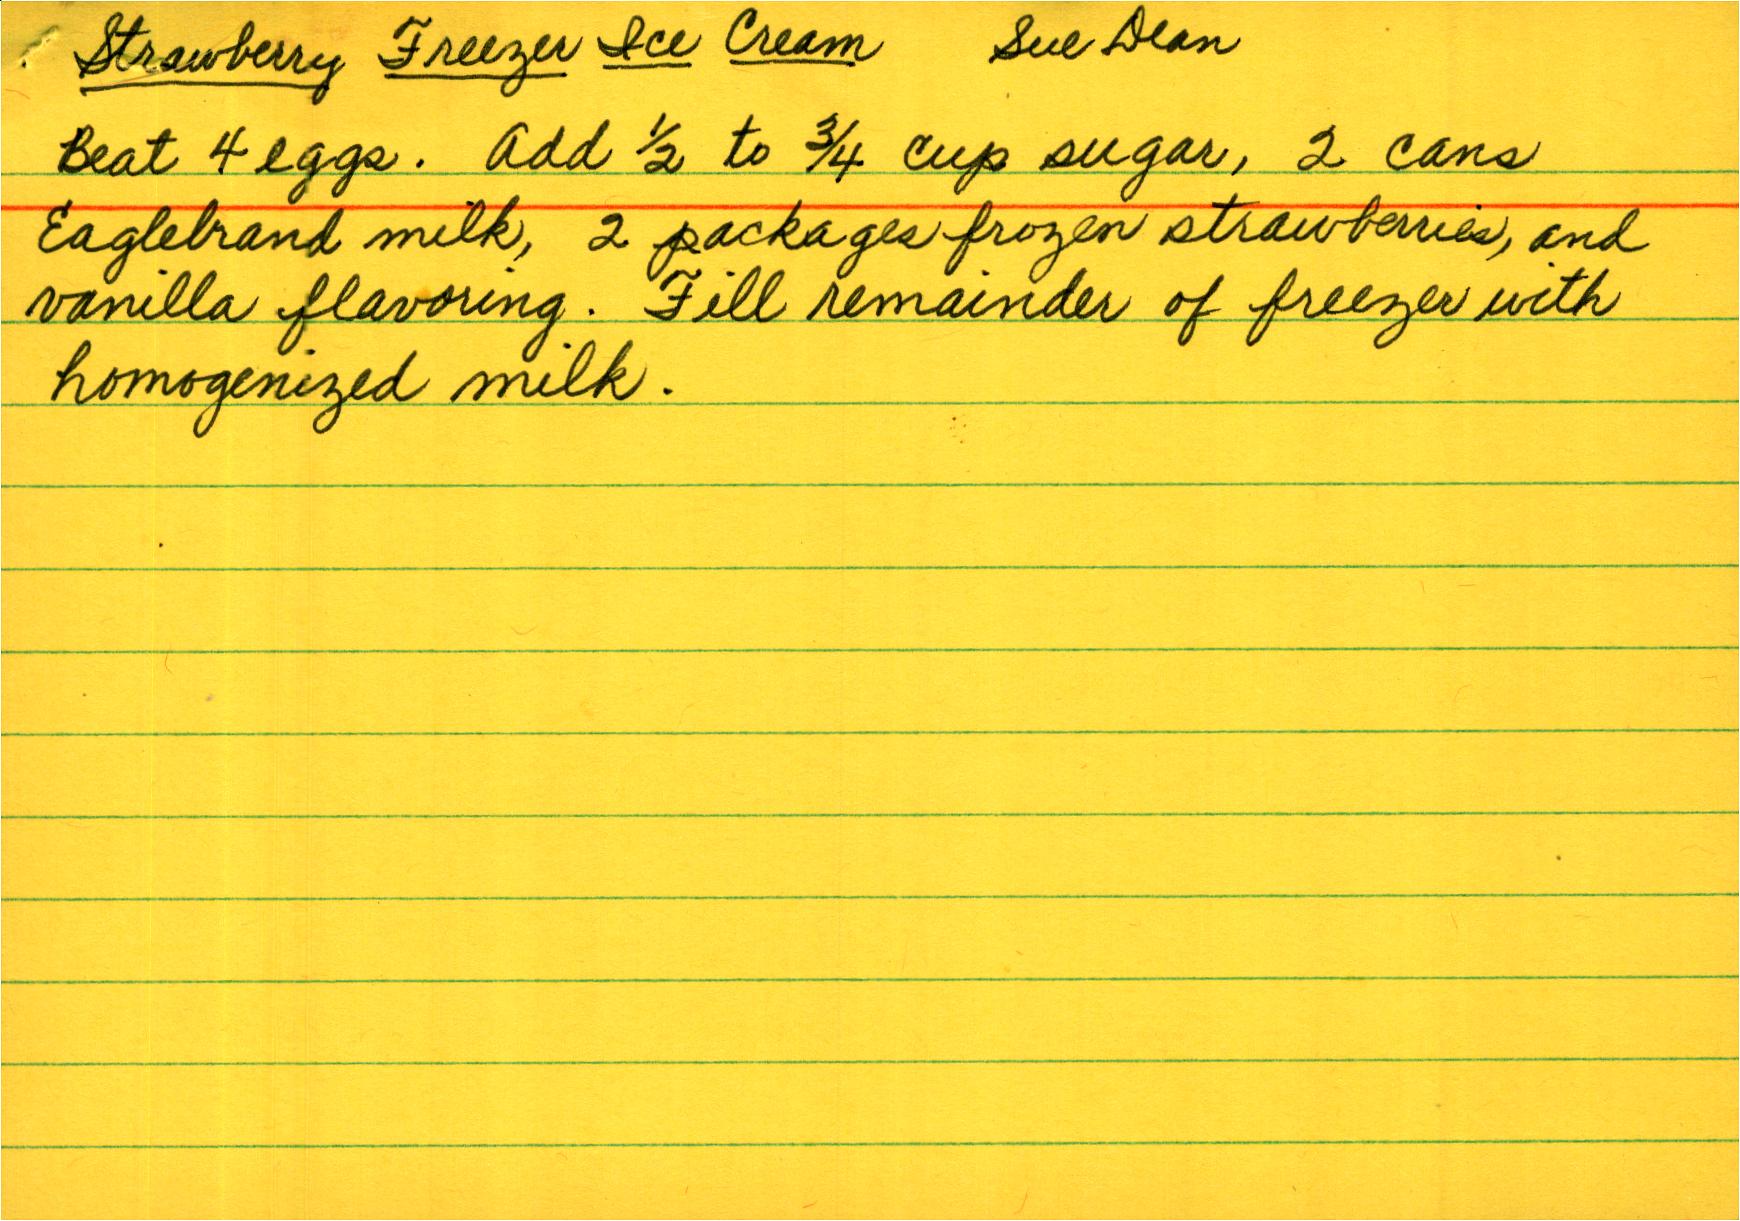 Strawberry Freezer Ice Cream Sue Dean
Beat 4 eggs. Add ½ to ¾ cup sugar, 2 cans
Eaglebrand milk, 2 packages frozen strawberries, and
vanilla flavoring. Fill remainder of freezer with
homogenized milk.